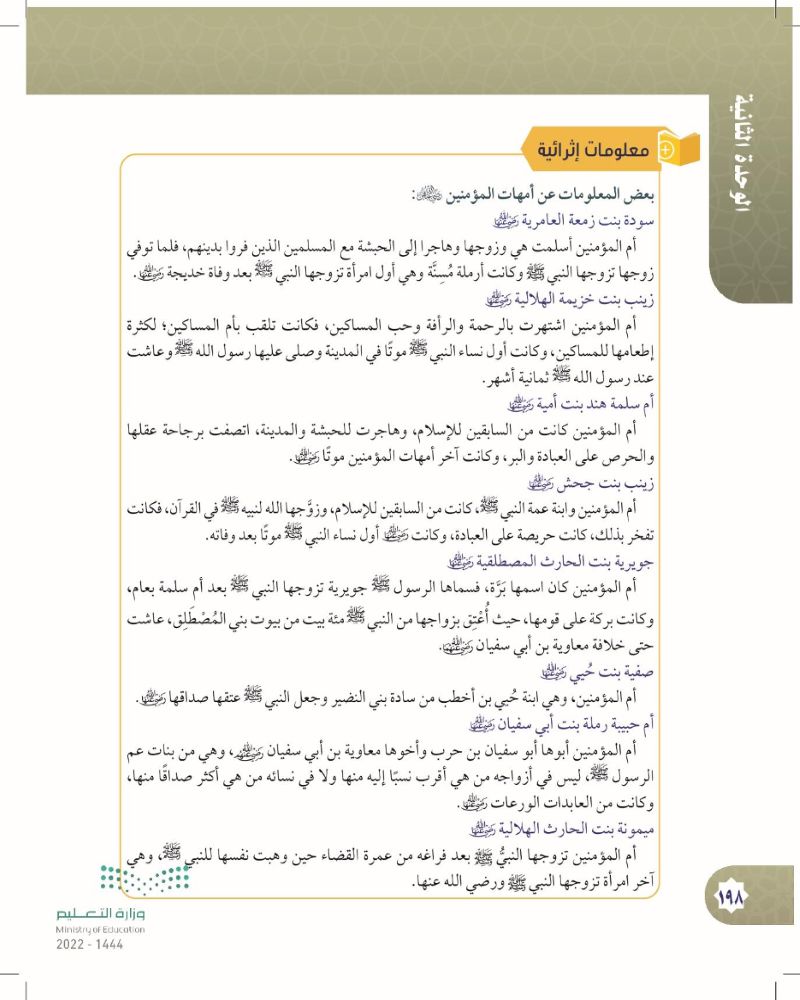 الوحدة الثانية
معلومات إثرائية
بعض المعلومات عن أمهات المؤمنين رضي الله عنهن:
سودة بنت زمعة العامرية رضي الله عنها
أم المؤمنين أسلمت هي وزوجها وهاجرا إلى الحبشة مع المسلمين الذين فروا بدينهم، فلما توفي
زوجها تزوجها النبي ﷺ وكانت أرملة مُسِنَّة وهي أول امرأة تزوجها النبي ﷺ بعد وفاة خديجة رضي الله عنها.
زينب بنت خزيمة الهلالية رضي الله عنها
أم المؤمنين اشتهرت بالرحمة والرأفة وحب المساكين، فكانت تلقب بأم المساكين؛ لكثرة
إطعامها للمساكين، وكانت أول نساء النبي ﷺ موتًا في المدينة وصلى عليها رسول الله ﷺ وعاشت
عند رسول الله ﷺ ثمانية أشهر.
أم سلمة هند بنت أمية رضي الله عنها
أم المؤمنين كانت من السابقين للإسلام، وهاجرت للحبشة والمدينة، اتصفت برجاحة عقلها
والحرص على العبادة والبر، وكانت آخر أمهات المؤمنين موتًا رضي الله عنها.
زينب بنت جحش رضي الله عنها
أم المؤمنين وابنة عمة النبي ﷺ، كانت من السابقين للإسلام، وزوَّجها الله لنبيه ﷺ في القرآن، فكانت
تفخر بذلك، كانت حريصة على العبادة، وكانت رضي الله عنها أول نساء النبي ﷺ موتًا بعد وفاته.
جويرية بنت الحارث المصطلقية رضي الله عنها
أم المؤمنين كان اسمها بَرَّة، فسماها الرسول ﷺ جويرية تزوجها النبي ﷺ بعد أم سلمة بعام،
وكانت بركة على قومها، حيث أُعْتِق بزواجها من النبي ﷺ مئة بيت من بيوت بني المُصْطَلِق، عاشت
حتى خلافة معاوية بن أبي سفيان رضي الله عنهما.
صفية بنت حُيي رضي الله عنها
أم المؤمنين، وهي ابنة حُيي بن أخطب من سادة بني النضير وجعل النبي ﷺ عتقها صداقها رضي الله عنها.
أم حبيبة رملة بنت أبي سفيان رضي الله عنها
أم المؤمنين أبوها أبو سفيان بن حرب وأخوها معاوية بن أبي سفيان رضي الله عنهم، وهي من بنات عم
الرسول ﷺ، ليس في أزواجه من هي أقرب نسبًا إليه منها ولا في نسائه من هي أكثر صداقًا منها،
وكانت من العابدات الورعات رضي الله عنها.
ميمونة بنت الحارث الهلالية رضي الله عنها
أم المؤمنين تزوجها النبيُّ ﷺ بعد فراغه من عمرة القضاء حين وهبت نفسها للنبي ﷺ، وهي
آخر امرأة تزوجها النبي ﷺ ورضي الله عنها.
١٩٨
وزارة التعليم
Ministry of Education
2022 - 1444